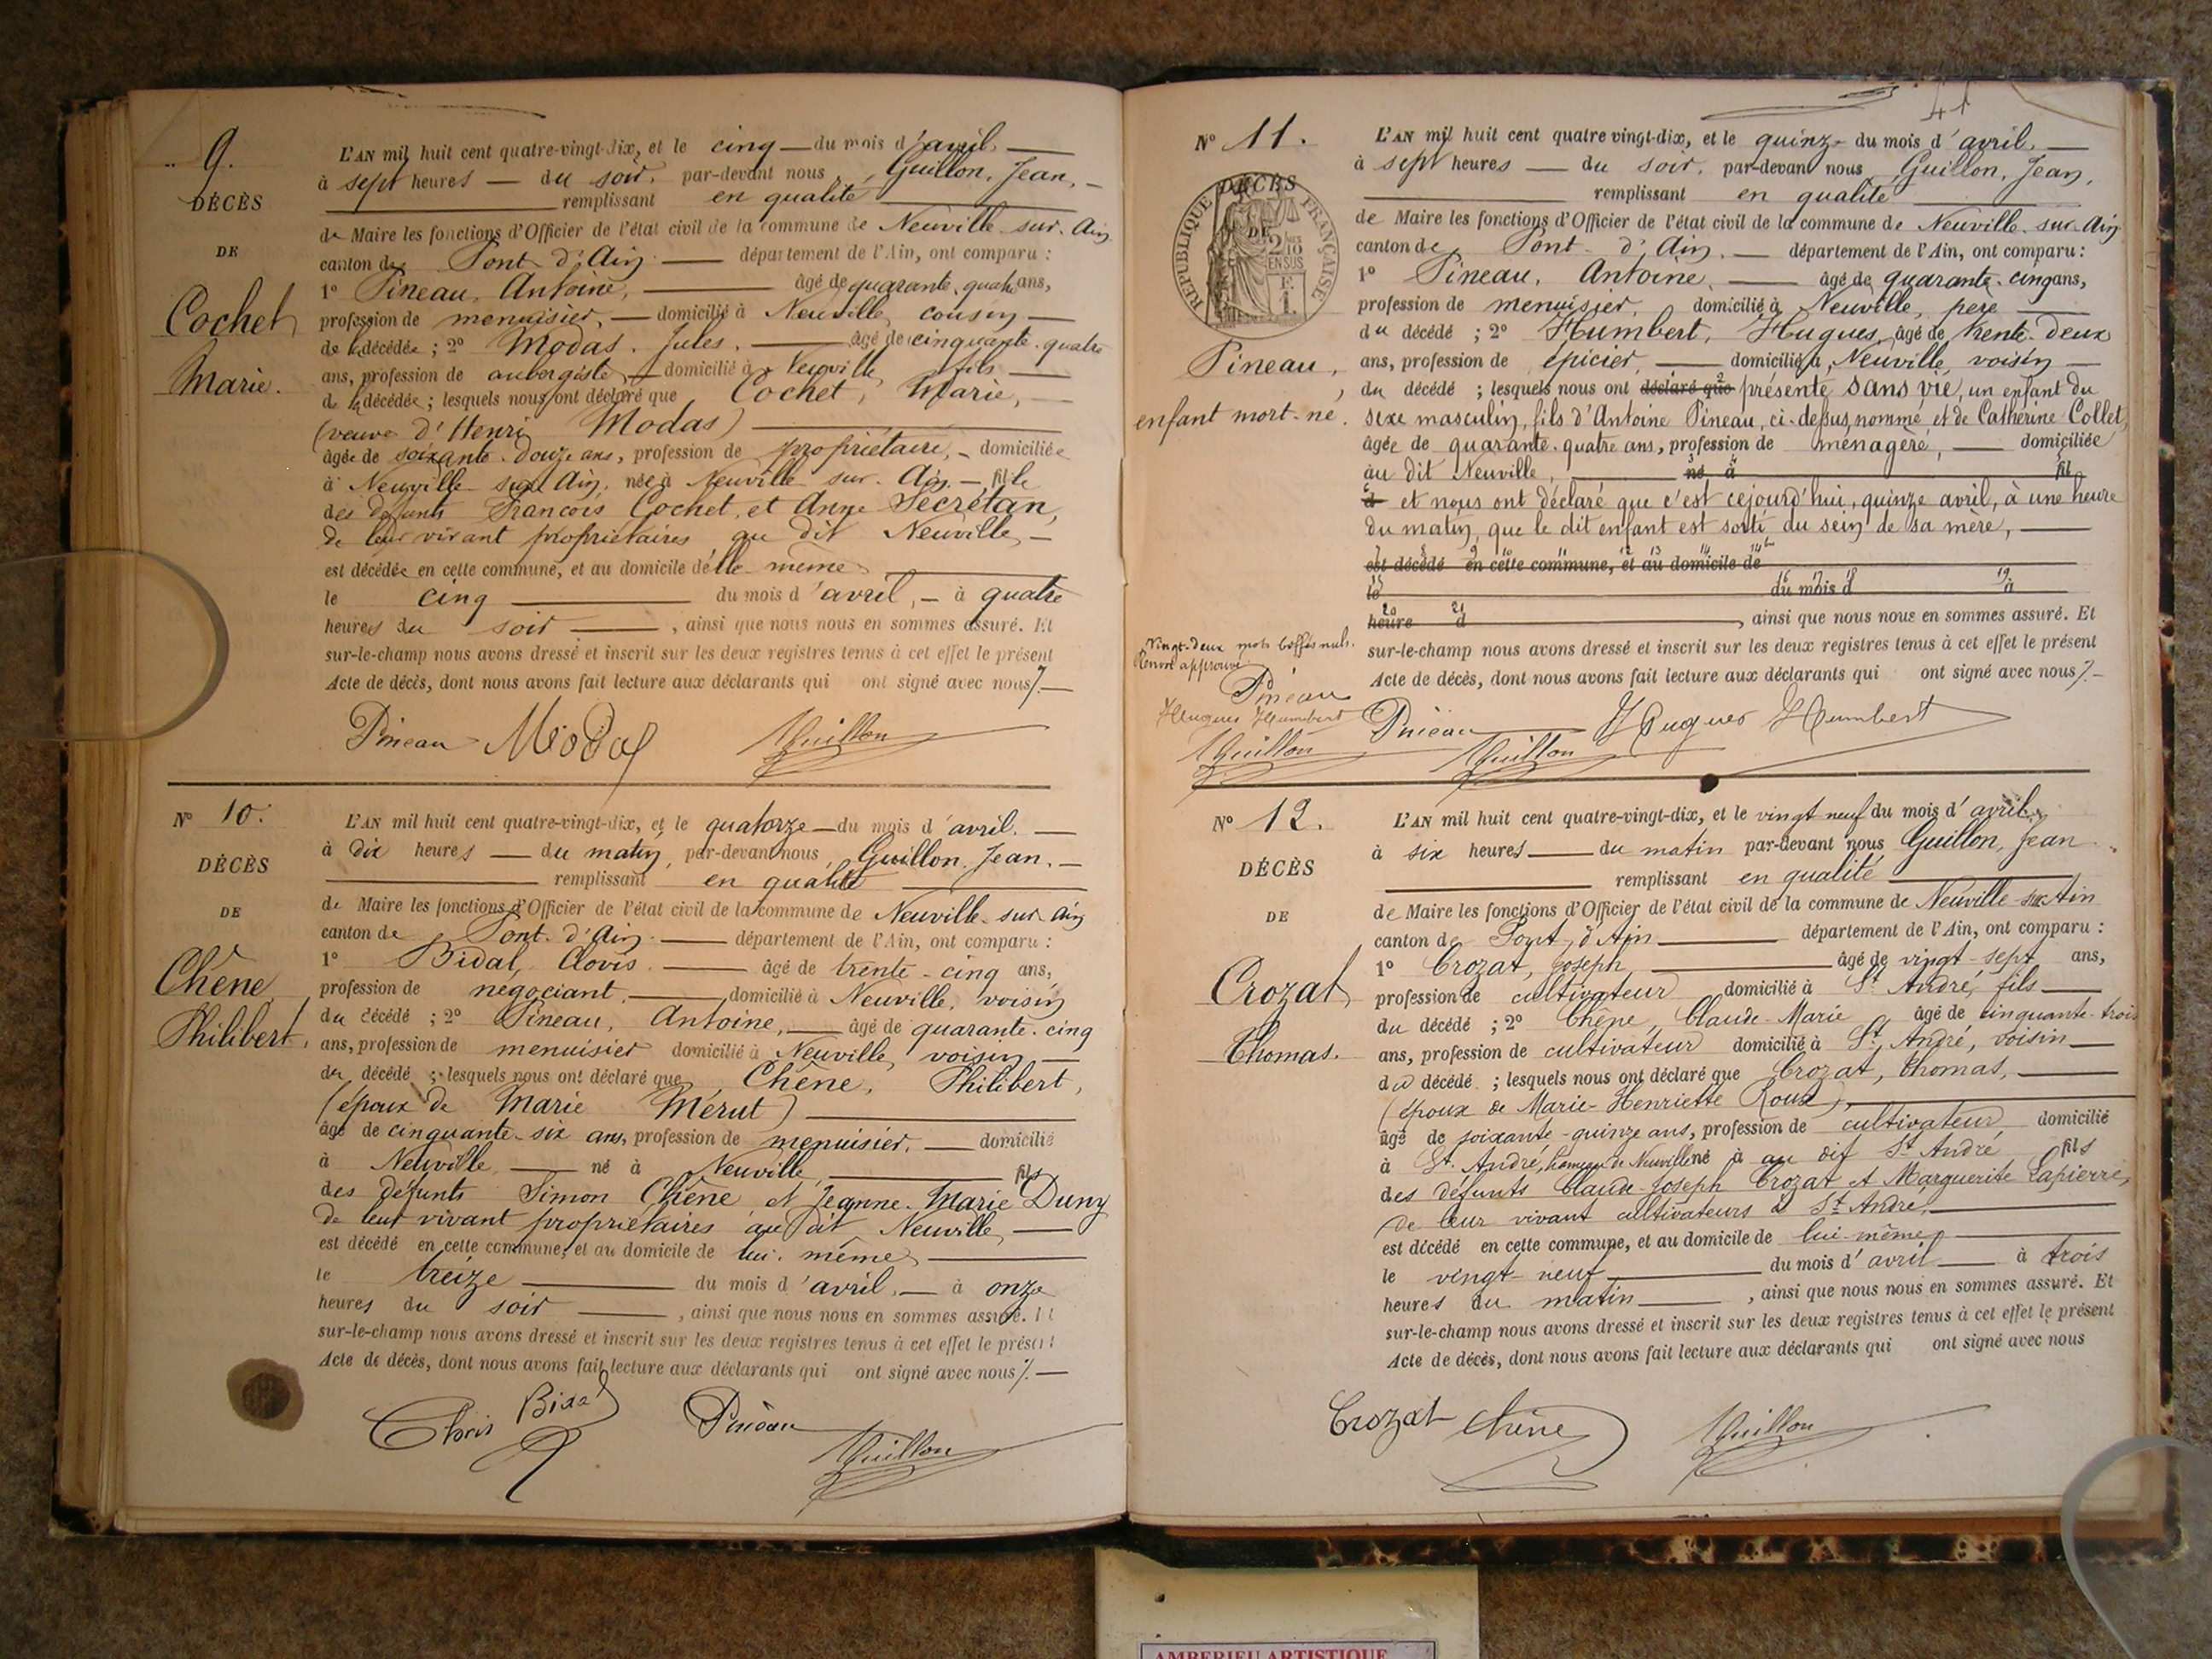 9.
DÉCÈS
DE
Cochet
Marie.
L'AN mil huit cent quatre-vingt-dix, et le cinq du mois d'avril,
à sept heures du soir, par-devant nous, Guillon, Jean,
remplissant en qualité
de Maire les fonctions d'Officier de l'état civil de la commune de Neuville-sur-Ain
canton de Pont-d'Ain département de l'Ain, ont comparu :
1° Pineau, Antoine, âgé de quarante-quatre ans,
profession de menuisier, domicilié à Neuville, cousin
de la décédée ; 2° Modas, Jules, âgé de cinquante-quatre
ans, profession de aubergiste, domicilié à Neuville, fils
de la décédée ; lesquels nous ont déclaré que Cochet, Marie,
(veuve d'Henri Modas)
âgée de soixante-douze ans, profession de propriétaire, domiciliée
à Neuville-sur-Ain, née à Neuville-sur-Ain, fille
des défunts François Cochet, et Anne Secrétan,
de leur vivant propriétaires au dit Neuville,
est décédée en cette commune, et au domicile d'elle-même
le cinq du mois d'avril, à quatre
heures du soir, ainsi que nous nous en sommes assuré. Et
sur-le-champ nous avons dressé et inscrit sur les deux registres tenus à cet effet le présent
Acte de décès, dont nous avons fait lecture aux déclarants qui ont signé avec nous
Pineau Modas Guillon
N° 10.
DÉCÈS
DE
Chêne
Philibert,
L'AN mil huit cent quatre-vingt-dix, et le quatorze du mois d'avril.
à dix heures du matin, par-devant nous, Guillon, Jean.
remplissant en qualité
de Maire les fonctions d'Officier de l'état civil de la commune de Neuville-sur-Ain
canton de Pont-d'Ain département de l'Ain, ont comparu :
1° Bidal, Clovis. âgé de trente-cinq ans,
profession de négociant, domicilié à Neuville, voisin
du décédé ; 2° Pineau, Antoine, âgé de quarante-cinq
ans, profession de menuisier domicilié à Neuville, voisin
du décédé ; lesquels nous ont déclaré que Chêne, Philibert,
(époux de Marie Mérut)
âgé de cinquante-six ans, profession de menuisier, domicilié
à Neuville, né à Neuville, fils
des défunts Simon Chêne et Jeanne-Marie Duny
de leur vivant propriétaires au dit Neuville,
est décédé en cette commune, et au domicile de lui-même
le treize du mois d'avril, à onze
heures du soir, ainsi que nous nous en sommes assuré. Et
sur-le-champ nous avons dressé et inscrit sur les deux registres tenus à cet effet le présent
Acte de décès, dont nous avons fait lecture aux déclarants qui ont signé avec nous
Clovis Bidal Pineau Guillon
41
N° 11.
DÉCÈS
DE
RÉPUBLIQUE FRANÇAISE
2/10 EN SUS
Pineau,
enfant mort-né.
L'AN mil huit cent quatre vingt-dix, et le quinze du mois d'avril,
à sept heures du soir, par-devant nous Guillon, Jean,
remplissant en qualité
de Maire les fonctions d'Officier de l'état civil de la commune de Neuville-sur-Ain
canton de Pont-d'Ain, département de l'Ain, ont comparu :
1° Pineau, Antoine, âgé de quarante-cinq ans,
profession de menuisier, domicilié à Neuville, père
du décédé ; 2° Humbert, Hugues, âgé de trente-deux
ans, profession de épicier, domicilié à Neuville, voisin
du décédé ; lesquels nous ont déclaré que présenté sans vie, un enfant du
sexe masculin, fils d'Antoine Pineau, ci-dessus nommé et de Catherine Collet,
âgée de quarante-quatre ans, profession de ménagère, domiciliée
au dit Neuville, né à fils
d et nous ont déclaré que c'est cejourd'hui, quinze avril, à une heure
du matin, que le dit enfant est sorti du sein de sa mère,
est décédé en cette commune, et au domicile de
le du mois d à
heure d, ainsi que nous nous en sommes assuré. Et
sur-le-champ nous avons dressé et inscrit sur les deux registres tenus à cet effet le présent
Acte de décès, dont nous avons fait lecture aux déclarants qui ont signé avec nous
Vingt-deux mots biffés nuls.
Renvoi approuvé
Pineau
Hugues Humbert
Guillon
Pineau Hugues Humbert
Guillon
N° 12.
DÉCÈS
DE
Crozat
Thomas.
L'AN mil huit cent quatre-vingt-dix, et le vingt neuf du mois d'avril,
à six heures du matin par-devant nous Guillon, Jean
remplissant en qualité
de Maire les fonctions d'Officier de l'état civil de la commune de Neuville-sur-Ain
canton de Pont-d'Ain département de l'Ain, ont comparu :
1° Crozat, Joseph âgé de vingt-sept ans,
profession de cultivateur domicilié à St André, fils
du décédé ; 2° Chêne, Claude-Marie âgé de cinquante-trois
ans, profession de cultivateur domicilié à St André, voisin
du décédé ; lesquels nous ont déclaré que Crozat, Thomas,
(époux de Marie-Henriette Roux),
âgé de soixante-quinze ans, profession de cultivateur domicilié
à St André, hameau de Neuville né à au dit St André fils
des défunts Claude-Joseph Crozat et Marguerite Lapierre,
de leur vivant cultivateurs à St André,
est décédé en cette commune, et au domicile de lui-même
le vingt-neuf du mois d'avril à trois
heures du matin, ainsi que nous nous en sommes assuré. Et
sur-le-champ nous avons dressé et inscrit sur les deux registres tenus à cet effet le présent
Acte de décès, dont nous avons fait lecture aux déclarants qui ont signé avec nous
Crozat Chêne Guillon
AMBERIEU ARTISTIQUE